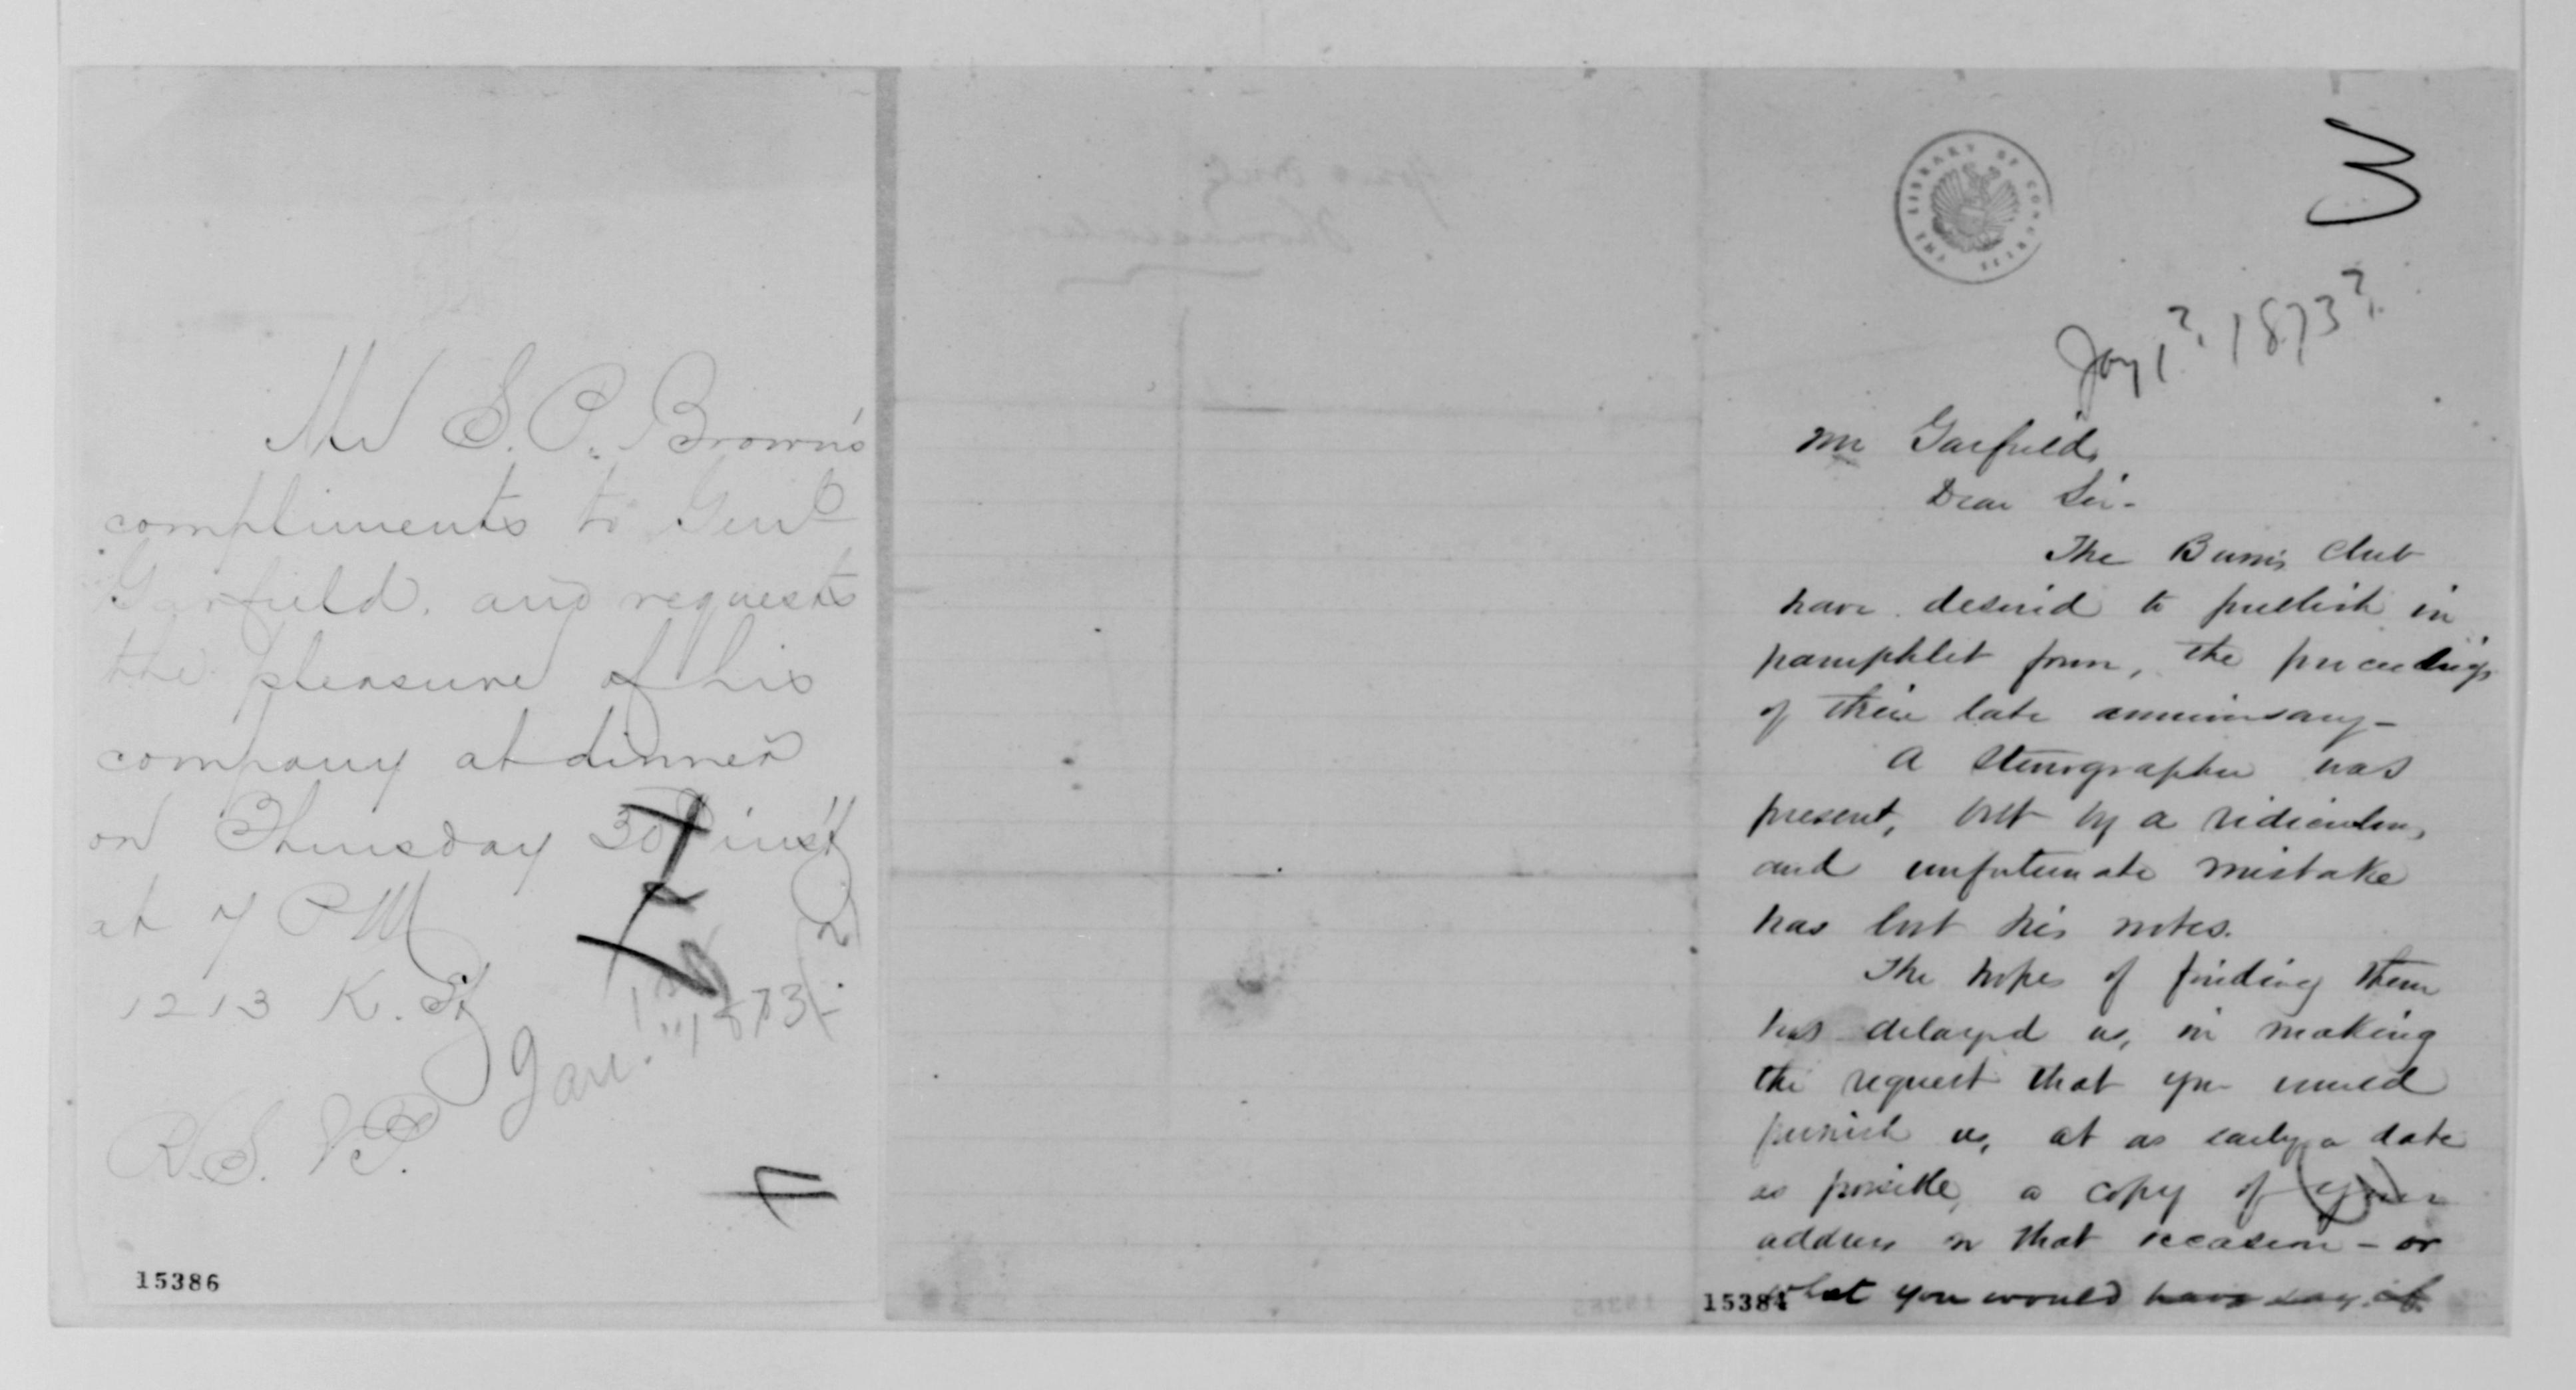 Mr S. P. Brown's
compliments to Genl
Garfield, and requests
the pleasure of his
company at dinner
on Thursday 30 inst
at 7 P M
1213 K. St
Jan. 1873
R. S. V. P.
15386
THE LIBRARY OF CONGRESS
3
Jany 1? 1873?
Mr Garfield,
Dear Sir -
The Burns Club
have desired to publish in
pamphlet form, the proceedings
of their late anniversary -
A Stenographer was
present, but by a ridiculous,
and unfortunate mistake
has lost his notes.
The hopes of finding them
has delayed us, in making
the request that you would
furnish us, at as early a date
as possible, a copy of your
address on that occasion - or
what you would have say if
15384